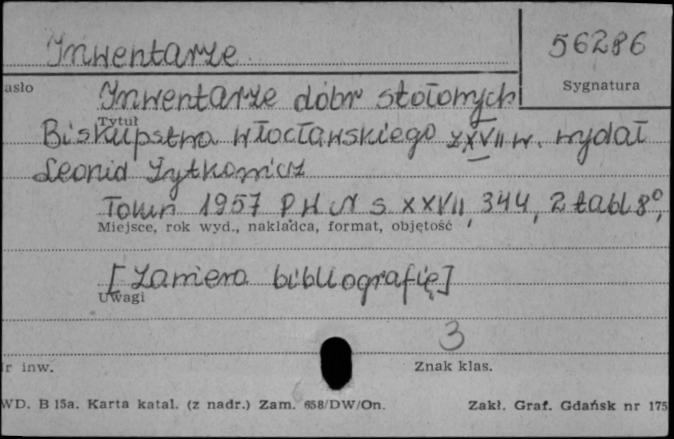 Inwentarze
56286
asło
Sygnatura
Inwentarze dóbr stołowych
Tytuł
Biskupstwa włocławskiego z XVII w. wydał
Leonid Żytkowicz
Toruń 1957 PWN s. XXVII, 344, 2 tabl. 8°,
Miejsce, rok wyd., nakładca, format, objętość
[Zawiera bibliografię]
Uwagi
3
r inw.
Znak klas.
WD. B 15a. Karta katal. (z nadr.) Zam. 658/DW/On.
Zakł. Graf. Gdańsk nr 175